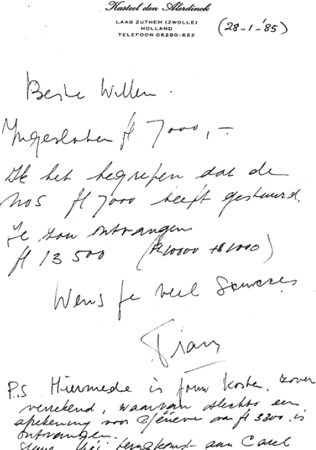 Kasteel den Alerdinck
LAAG ZUTHEM (ZWOLLE)
HOLLAND
TELEFOON 05290-622
(28-1-'85)
Beste Willem.
Ingesloten fl 7000,-
Ik heb begrepen dat de
NOS fl 7000 heeft gestuurd.
Je zou ontvangen
fl 13 500
Wens je veel succes
Frans
P.S. Hiermede is jouw kosten, zover
verrekend, waarvan slechts een
afrekening voor Genève van fl 3300 is
ontvangen.
aan Carel